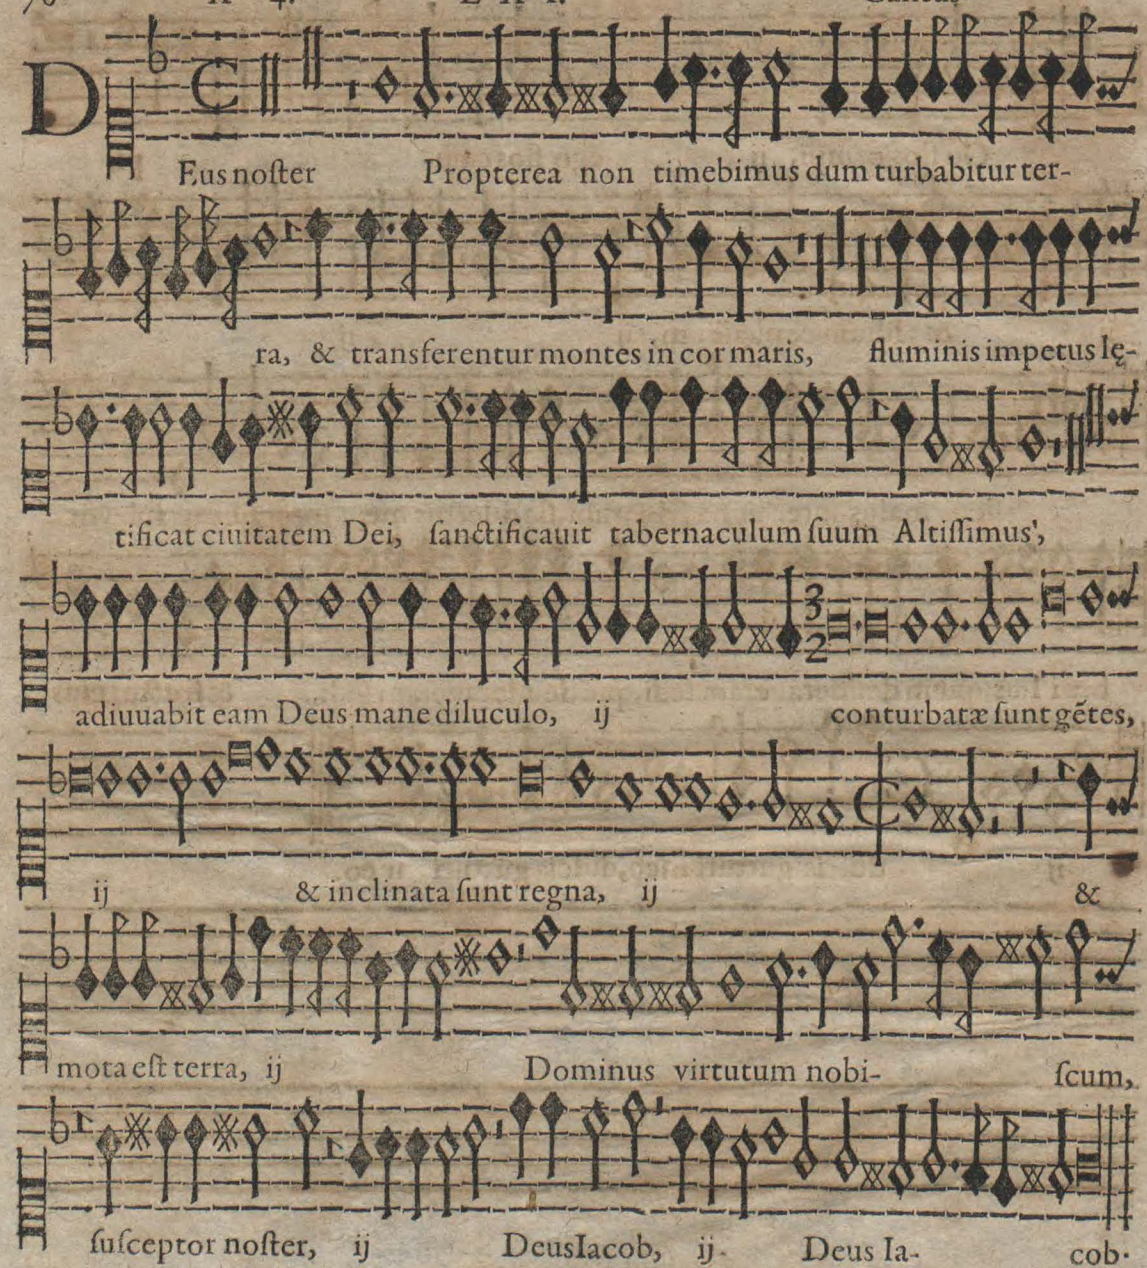 D
Eus noſter Propterea non timebimus dum turbabitur ter-
ra, & transferentur montes in cor maris, fluminis impetus lę-
tificat ciuitatem Dei, ſanctificauit tabernaculum ſuum Altiſſimus',
3
2
adiuuabit eam Deus mane diluculo, ij conturbatæ ſunt gẽtes,
ij & inclinata ſunt regna, ij &
mota eſt terra, ij Dominus virtutum nobi- ſcum,
ſuſceptor noſter, ij DeusIacob, ij. Deus Ia- cob.